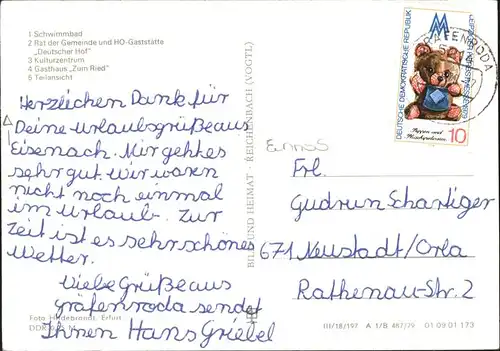 1 Schwimmbad
2 Rat der Gemeinde und HO-Gaststätte
„Deutscher Hof"
3 Kulturzentrum
4 Gasthaus „Zum Ried"
5 Teilansicht
Herzlichen Dank für
Deine Urlaubsgrüße aus
Eisenach. Mir geht es
sehr gut. Wir waren
nicht noch einmal
im Urlaub. Zur
Zeit ist es sehr schönes
Wetter.
Viele Grüße aus
Gräfenroda sendet
Ihnen Hans Griebel
Foto: Hildebrandt, Erfurt
DDR
M
BILD UND HEIMAT · REICHENBACH (VOGTL)
DEUTSCHE DEMOKRATISCHE REPUBLIK
LEIPZIGER HERBSTMESSE 1979
MM
Puppen und
10
RÄFENRODA
Frl.
Gudrun Schartiger
671 Neustadt/Orla
Rathenau-Str. 2
III/18/197 A 1/B 487/79 01 09 01 173